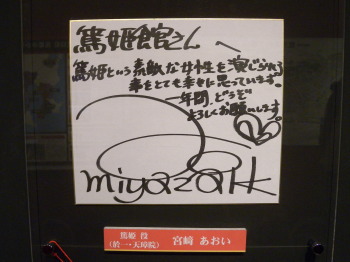 篤姫館さんへ
篤姫という素敵な女性を演じられる
事をとても幸せに思っています。
一年間、どうぞ
よろしくお願いします。
miyazakk
篤姫 役
(於一・天璋院)
宮﨑 あおい